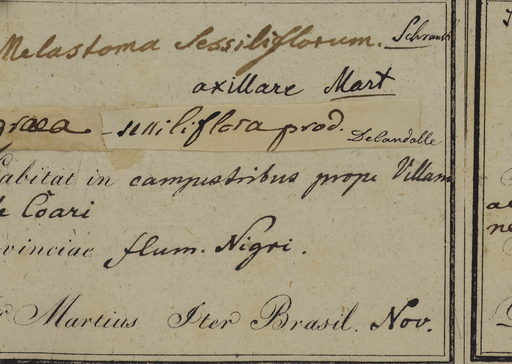 Melastoma sessiliflorum. Schrank
axillare Mart
graea sessiliflora prod. Decandolle
abitat in campestribus prope Villam
de Coari
vinciae flum. Nigri.
Martius Iter Brasil. Nov.